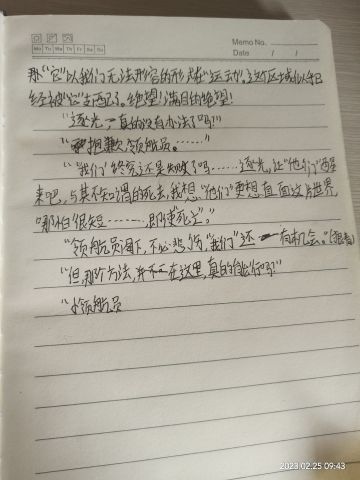 Memo No.
Mo Tu We Th Fr Sa Su
Date / /
那“它”以我们无法形容的形态在“运动”，这片区域似乎已
经被“它”主宰了。绝望！满目的绝望！
“逐光，真的没有办法了吗！”
“抱歉领航员。……”
“‘我们’终究还是失败了吗……逐光，让“他们”醒
来吧，与其不知所谓的死去，我想“他们”更想直面这片世界
哪怕很短……，即使死亡”。”
“领航员阁下，不必悲伤“我们”还有机会。”
“但，那个方法，并不在这里，真的能行吗！”
“领航员
2023.02.25 09:43